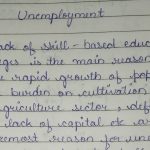 Unemployment
ack of skill - based educ
eges is the main reason
e rapid growth of pop
burden on cultivation
griculture sector, def
lack of capital etc ar
emost reason for une